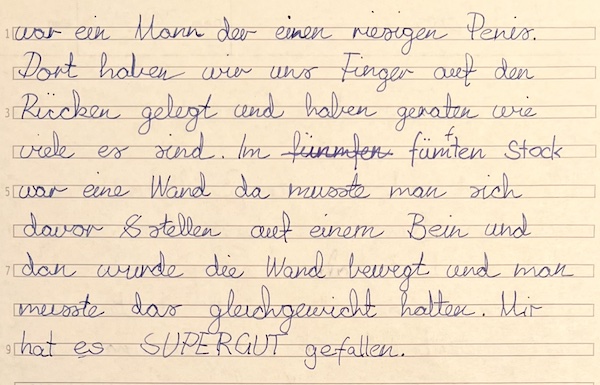 war ein Mann der einen riesigen Penis.
Dort haben wir uns Finger auf den
Rücken gelegt und haben geraten wie
viele es sind. Im fünmfen fümften Stock
war eine Wand da musste man sich
davor S stellen auf einem Bein und
dan wurde die Wand bewegt und man
musste das gleichgewicht halten. Mir
hat es SUPERGUT gefallen.